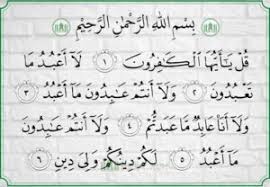 بِسْمِ اللهِ الرَّحْمٰنِ الرَّحِيْمِ
قُلْ يٰٓاَيُّهَا الْكٰفِرُوْنَ ۝١ لَآ اَعْبُدُ مَا
تَعْبُدُوْنَ ۝٢ وَلَآ اَنْتُمْ عٰبِدُوْنَ مَآ اَعْبُدُ ۝٣
وَلَآ اَنَا۠ عَابِدٌ مَّا عَبَدْتُّمْ ۝٤ وَلَآ اَنْتُمْ عٰبِدُوْنَ
مَآ اَعْبُدُ ۝٥ لَكُمْ دِيْنُكُمْ وَلِيَ دِيْنِ ۝٦